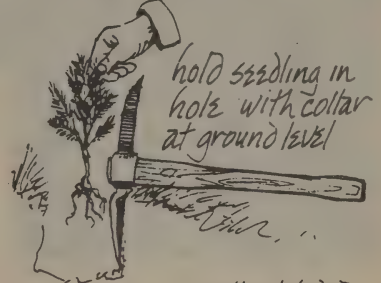 hold seedling in
hole with collar
at ground level